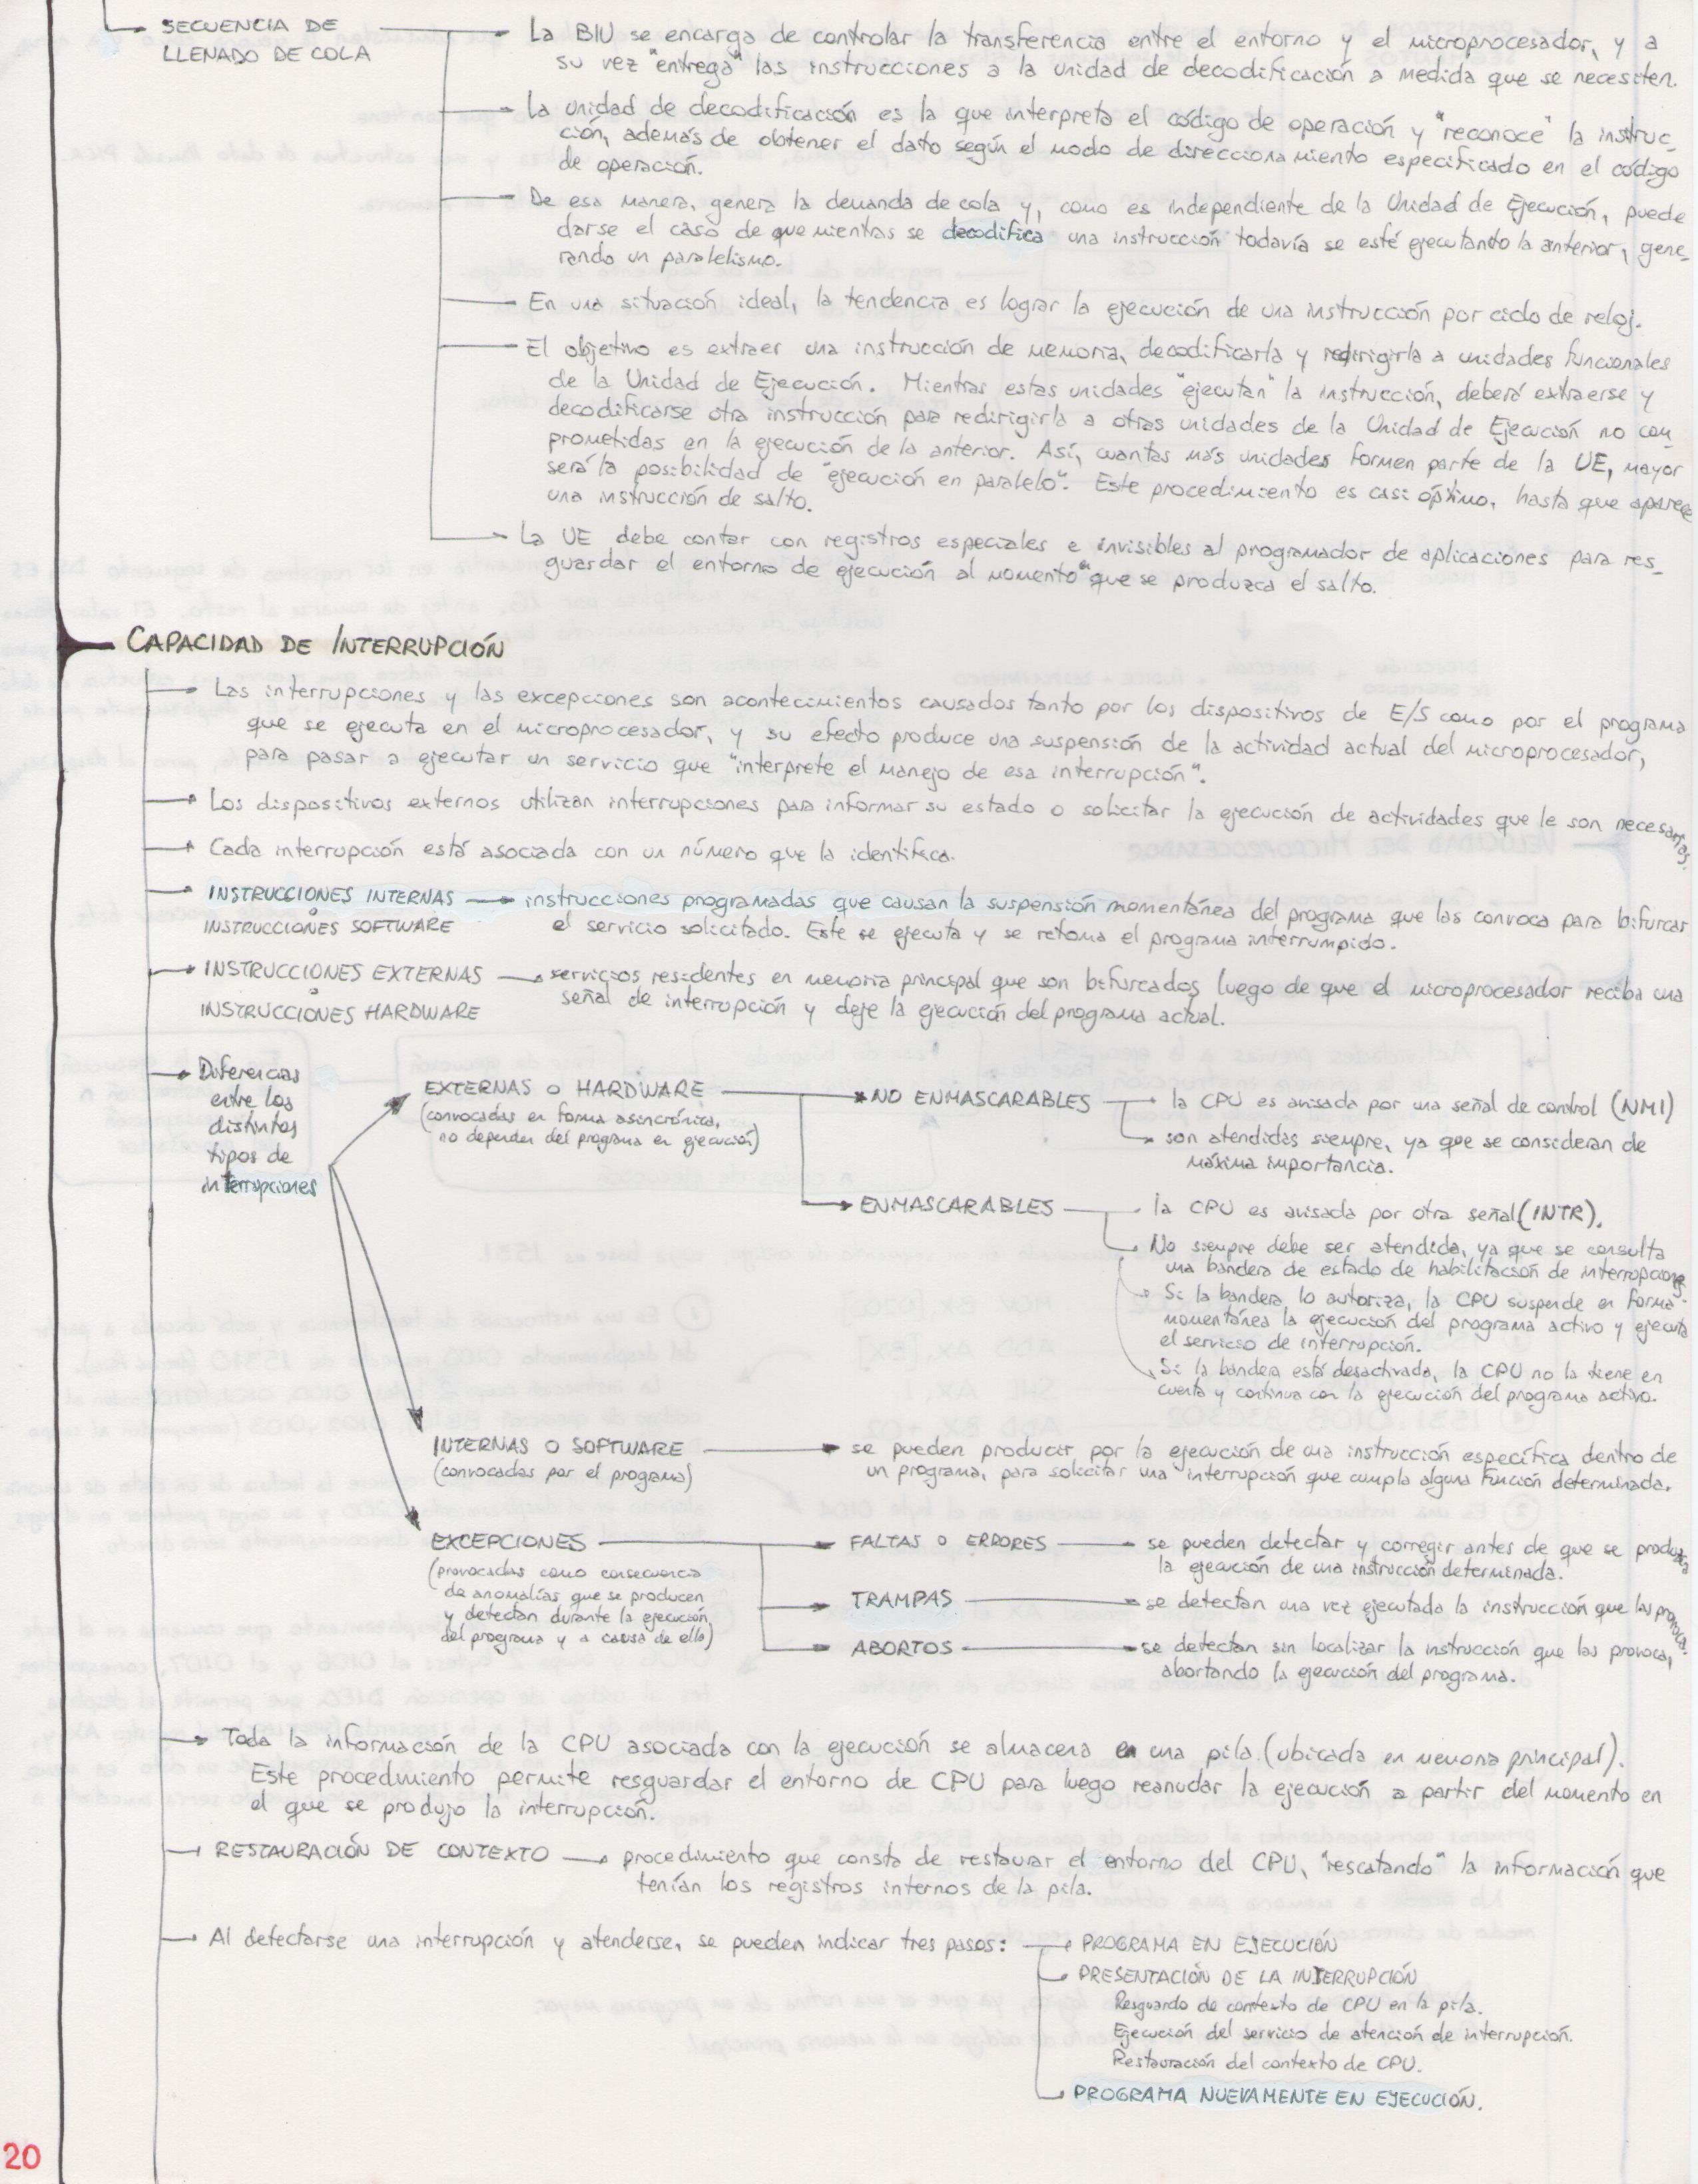 SECUENCIA DE
LLENADO DE COLA
La BIU se encarga de controlar la transferencia entre el entorno y el microprocesador, y a
su vez "entrega" las instrucciones a la unidad de decodificación a medida que se necesiten.
La unidad de decodificación es la que interpreta el código de operación y "reconoce" la instruc_
ción, además de obtener el dato según el modo de direccionamiento especificado en el código
de operación.
De esa manera, genera la demanda de cola y, como es independiente de la Unidad de Ejecución, puede
darse el caso de que mientras se decodifica una instrucción todavía se esté ejecutando la anterior, gene_
rando un paralelismo.
En una situación ideal, la tendencia es lograr la ejecución de una instrucción por ciclo de reloj.
El objetivo es extraer una instrucción de memoria, decodificarla y redirigirla a unidades funcionales
de la Unidad de Ejecución. Mientras estas unidades "ejecutan" la instrucción, deberá extraerse y
decodificarse otra instrucción para redirigirla a otras unidades de la Unidad de Ejecución no com_
prometidas en la ejecución de la anterior. Así, cuantas más unidades formen parte de la UE, mayor
será la posibilidad de "ejecución en paralelo". Este procedimiento es casi óptimo, hasta que aparece
una instrucción de salto.
La UE debe contar con registros especiales e invisibles al programador de aplicaciones para res_
guardar el entorno de ejecución al momento" que se produzca el salto.
CAPACIDAD DE INTERRUPCIÓN
Las interrupciones y las excepciones son acontecimientos causados tanto por los dispositivos de E/S como por el programa
que se ejecuta en el microprocesador, y su efecto produce una suspensión de la actividad actual del microprocesador,
para pasar a ejecutar un servicio que "interprete el manejo de esa interrupción".
Los dispositivos externos utilizan interrupciones para informar su estado o solicitar la ejecución de actividades que le son necesarias.
Cada interrupción está asociada con un número que la identifica.
INSTRUCCIONES INTERNAS
o
INSTRUCCIONES SOFTWARE
instrucciones programadas que causan la suspensión momentánea del programa que las convoca para bifurcar
el servicio solicitado. Este se ejecuta y se retoma el programa interrumpido.
INSTRUCCIONES EXTERNAS
o
INSTRUCCIONES HARDWARE
servicios residentes en memoria principal que son bifurcados luego de que el microprocesador reciba una
señal de interrupción y deje la ejecución del programa actual.
Diferencias
entre los
distintos
tipos de
interrupciones
EXTERNAS O HARDWARE
(convocadas en forma asincrónica,
no dependen del programa en ejecución)
NO ENMASCARABLES
la CPU es avisada por una señal de control (NMI)
son atendidas siempre, ya que se consideran de
máxima importancia.
ENMASCARABLES
la CPU es avisada por otra señal (INTR).
No siempre debe ser atendida, ya que se consulta
una bandera de estado de habilitación de interrupciones.
Si la bandera lo autoriza, la CPU suspende en forma
momentánea la ejecución del programa activo y ejecuta
el servicio de interrupción.
Si la bandera está desactivada, la CPU no la tiene en
cuenta y continua con la ejecución del programa activo.
INTERNAS O SOFTWARE
(convocadas por el programa)
se pueden producir por la ejecución de una instrucción específica dentro de
un programa, para solicitar una interrupción que cumpla alguna función determinada.
EXCEPCIONES
(provocadas como consecuencia
de anomalías que se producen
y detectan durante la ejecución
del programa y a causa de ello)
FALTAS O ERRORES
se pueden detectar y corregir antes de que se produzca
la ejecución de una instrucción determinada.
TRAMPAS
se detectan una vez ejecutada la instrucción que las provoca.
ABORTOS
se detectan sin localizar la instrucción que las provoca,
abortando la ejecución del programa.
Toda la información de la CPU asociada con la ejecución se almacena en una pila (ubicada en memoria principal).
Este procedimiento permite resguardar el entorno de CPU para luego reanudar la ejecución a partir del momento en
el que se produjo la interrupción.
RESTAURACIÓN DE CONTEXTO
procedimiento que consta de restaurar el entorno del CPU, "rescatando" la información que
tenían los registros internos de la pila.
Al detectarse una interrupción y atenderse, se pueden indicar tres pasos:
PROGRAMA EN EJECUCIÓN
PRESENTACIÓN DE LA INTERRUPCIÓN
Resguardo de contexto de CPU en la pila.
Ejecución del servicio de atención de interrupción.
Restauración del contexto de CPU.
PROGRAMA NUEVAMENTE EN EJECUCIÓN.
20